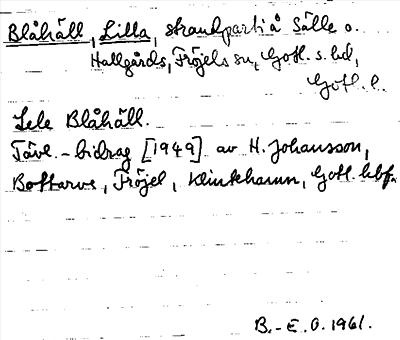 Blåhäll, Lilla, strandparti å Sälle o.
Hallgårds, Fröjels sn, Gotl. s. hd,
Gotl. l.
Lele Blåhäll.
Tävl.-bidrag [1949] av H. Johansson,
Bottarve, Fröjel, Klintehamn, Gotl. hbf.
B.-E.O. 1961.